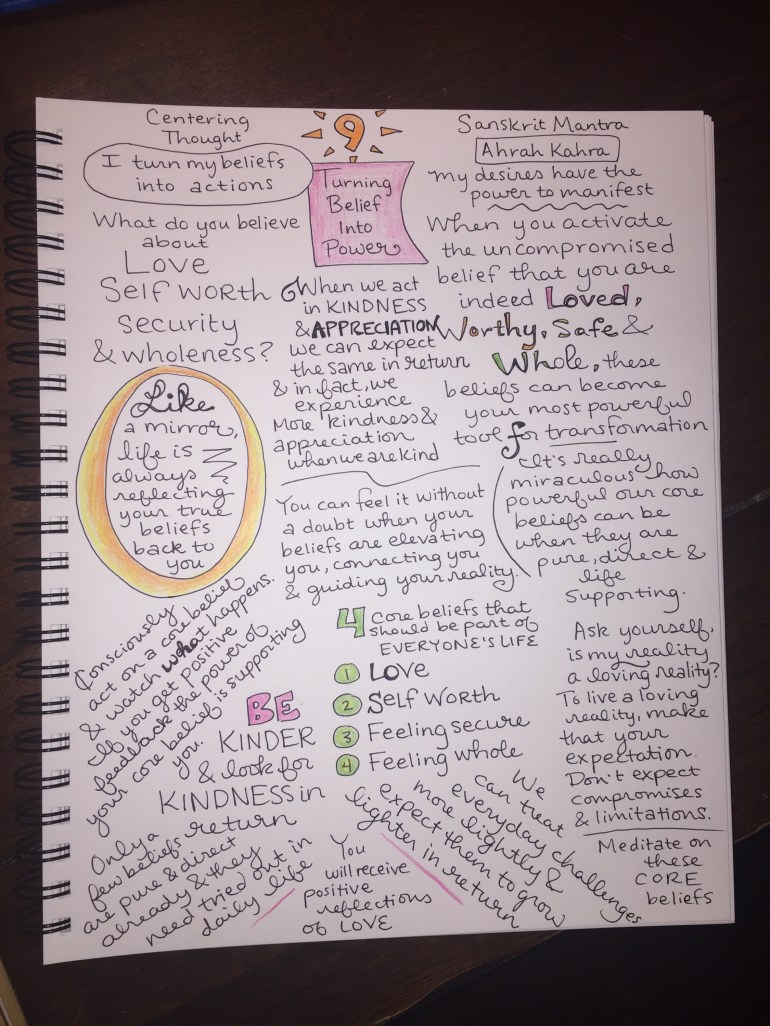 Centering
Thought
I turn my beliefs
into actions
9
Turning
Belief
Into
Power
Sanskrit Mantra
Ahrah Kahra
My desires have the
power to manifest
What do you believe
about
Love
Self Worth
Security
& wholeness?
When we act
in KINDNESS
& APPRECIATION
we can expect
the same in return
& in fact, we
experience
More kindness &
appreciation
when we are kind
When you activate
the uncompromised
belief that you are
indeed Loved,
Worthy, Safe &
Whole, these
beliefs can become
your most powerful
tool for transformation
Like
a mirror,
life is
always
reflecting
your true
beliefs
back to
you
You can feel it without
a doubt when your
beliefs are elevating
you, connecting you
& guiding your reality.
It's really
miraculous how
powerful our core
beliefs can be
when they are
pure, direct &
life
supporting.
Consciously
act on a core belief
& watch what happens.
If you get positive
feedback the power of
your core belief is supporting
you.
4 Core beliefs that
should be part of
EVERYONE'S LIFE
1 Love
2 Self Worth
3 Feeling secure
4 Feeling whole
Ask yourself,
is my reality
a loving reality?
To live a loving
reality, make
that your
expectation.
Don't expect
compromises
& limitations.
BE
KINDER
& look for
KINDNESS in
return
Only a
few beliefs
are pure & direct
already & they
need tried out in
daily life
You
will receive
positive
reflections
of LOVE
We
can treat
everyday challenges
more lightly &
expect them to grow
lighter in return
Meditate on
these
CORE
beliefs